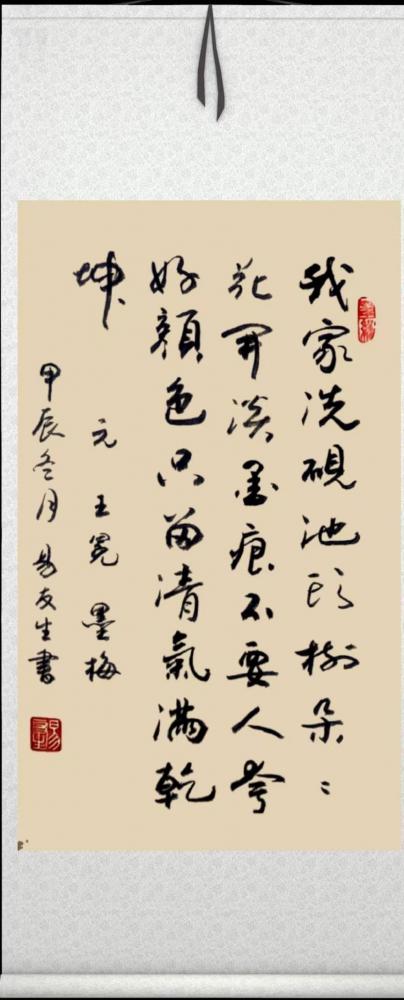 我家洗硯池頭樹朵〻
花開淡墨痕不要人夸
好顏色只留清氣滿乾
坤
元 王冕 墨梅
甲辰冬月 易友生書